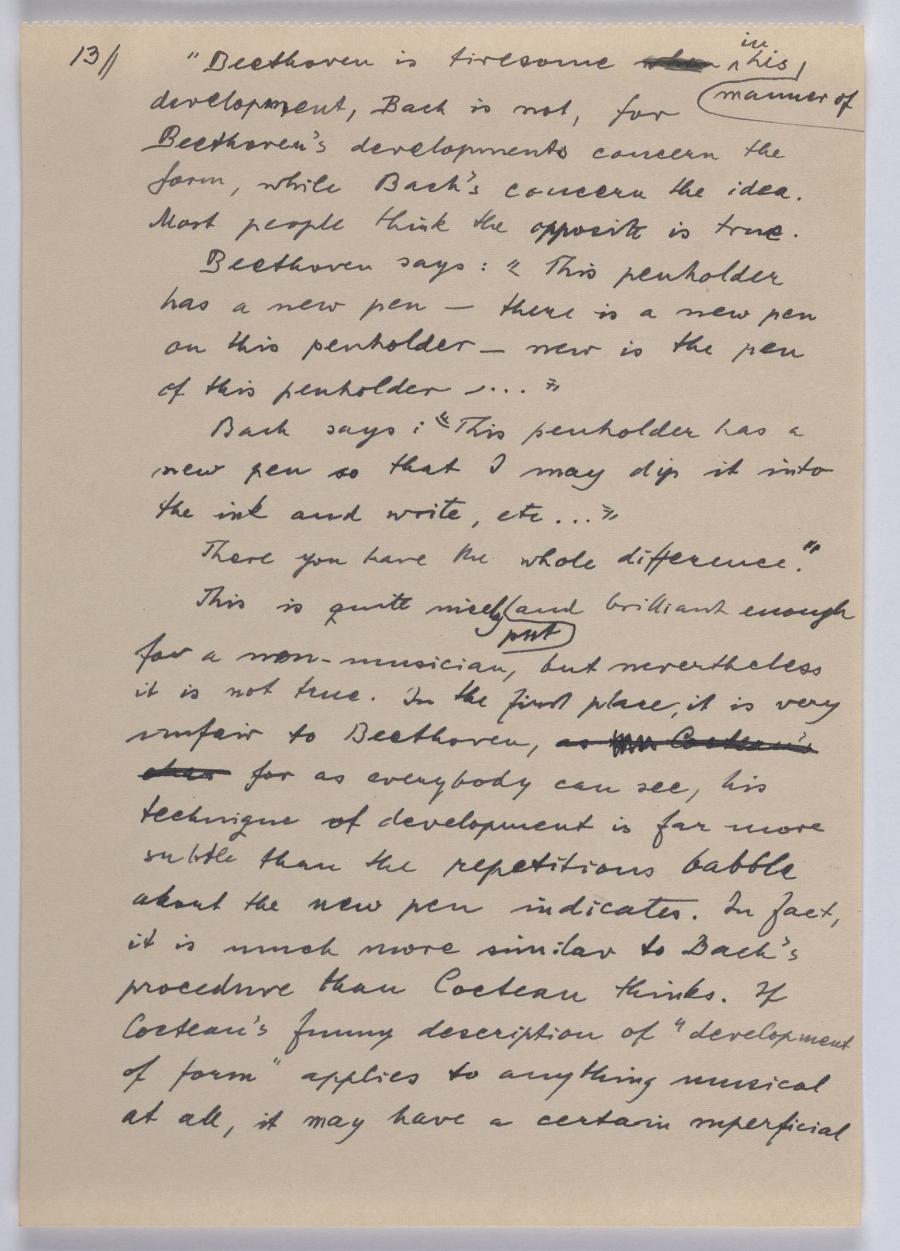 13//
"Beethoven is tiresome in his
manner of
development, Bach is not, for
Beethoven's developments concern the
form, while Bach's concern the idea.
Most people think the opposite is true.
Beethoven says: "This penholder
has a new pen — there is a new pen
on this penholder — new is the pen
of this penholder ...."
Bach says: "This penholder has a
new pen so that I may dip it into
the ink and write, etc..."
There you have the whole difference."
This is quite nicely (and brilliant enough
put
for a non-musician, but nevertheless
it is not true. In the first place, it is very
unfair to Beethoven, as Cocteau's
for as everybody can see, his
technique of development is far more
subtle than the repetitious babble
about the new pen indicates. In fact,
it is much more similar to Bach's
procedure than Cocteau thinks. If
Cocteau's funny description of "development
of form" applies to anything musical
at all, it may have a certain superficial